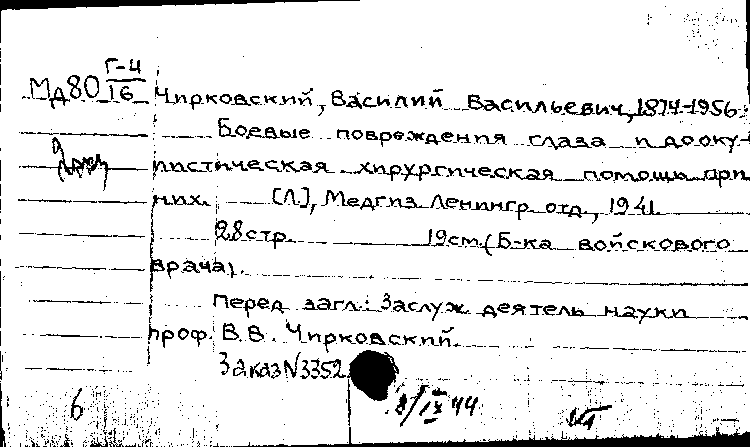 Г-4
Мд80 16 Чирковский, Василий Васильевич, 1874-1956.
Боевые повреждения глаза и дооку-
листическая хирургическая помощь при
них. [Л], Медгиз Ленингр. отд., 1941.
28стр. 19см. (Б-ка войскового
врача).
Перед загл.: Заслуж. деятель науки
проф. В.В. Чирковский.
Заказ N3352
6 8/IX 44